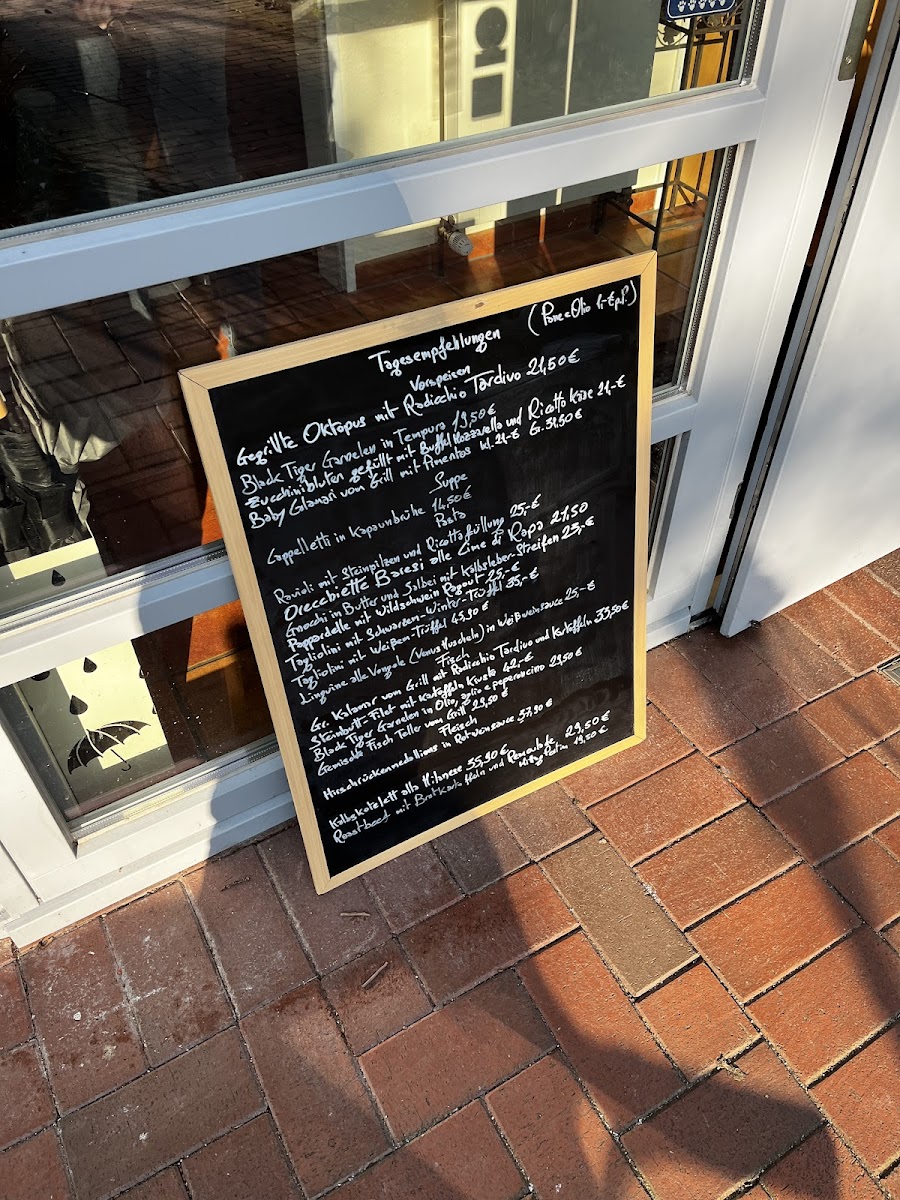 (Pane e Olio 1,-€ p.P.)
Tagesempfehlungen
Vorspeisen
Gegrillte Oktopus mit Radicchio Tardivo 21,50€
Black Tiger Garnelen in Tempura 19,50€
Zucchiniblüten gefüllt mit Büffel Mozzarella und Ricotta Käse 21,-€
Baby Calamari vom Grill mit Pimentos kl. 21,-€ G. 31,50€
Suppe
Cappelletti in Kapaunbrühe 14,50€
Pasta
Ravioli mit Steinpilzen und Ricottafüllung 25,-€
Orecchiette Baresi alle Cime di Rapa 21,50
Gnocchi in Butter und Salbei mit Kalbsleber-Streifen 25,-€
Pappardelle mit Wildschwein Ragout 25,-€
Tagliolini mit Schwarzen-Winter-Trüffel 35,-€
Tagliolini mit Weißem-Trüffel 45,90€
Linguine alle Vongole (Venus Muscheln) in Weißweinsauce 25,-€
Fisch
Gr. Kalamar vom Grill mit Radicchio Tardivo und Kartoffeln 33,50€
Steinbutt-Filet mit Kartoffeln Kruste 42,-€
Black Tiger Garnelen in Olio, aglio e peperoncino 29,50€
Gemischte Fisch Teller vom Grill
Fleisch
Hirschrückenmedallions in Rotweinsauce 37,90€
Kalbskotelett alla Milanese 35,90€
Roastbeef mit Bratkartoffeln und Remoulade 29,50€
19,50€